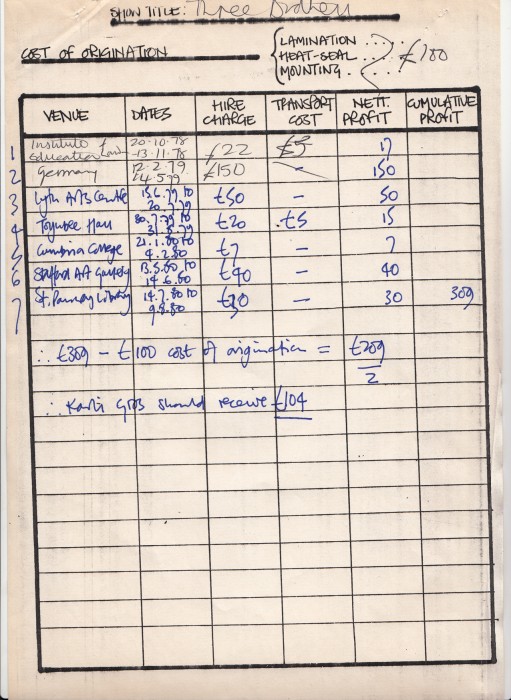 SHOW TITLE: Three Brothers
COST OF ORIGINATION
LAMINATION ...
HEAT-SEAL ...
MOUNTING. ..
£100
VENUE DATES HIRE CHARGE TRANSPORT COST NETT. PROFIT CUMULATIVE PROFIT
1 Institute of Education 20-10-78 -13-11-78 £22 £5 17
2 Germany 12-2-79 £150 — 150
3 Arts Centre 15.6.79 to £50 — 50
4 Toynbee Hall to £20 .£5 15
5 Cumbria College 21.1.80 to 4.2.80 £7 — 7
6 Stafford Art Gallery 13.5.80 to 14.6.80 £40 — 40
7 St. Pancras Library 14.7.80 to 9.8.80 £30 — 30 309
∴ £309 – £100 cost of origination = £209
2
∴ should receive £104